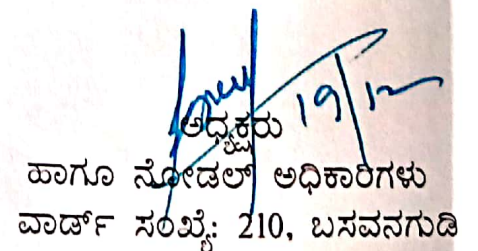 19/12
ಅಧ್ಯಕ್ಷರು
ಹಾಗೂ ನೋಡಲ್ ಅಧಿಕಾರಿಗಳು
ವಾರ್ಡ್ ಸಂಖ್ಯೆ: 210, ಬಸವನಗುಡಿ